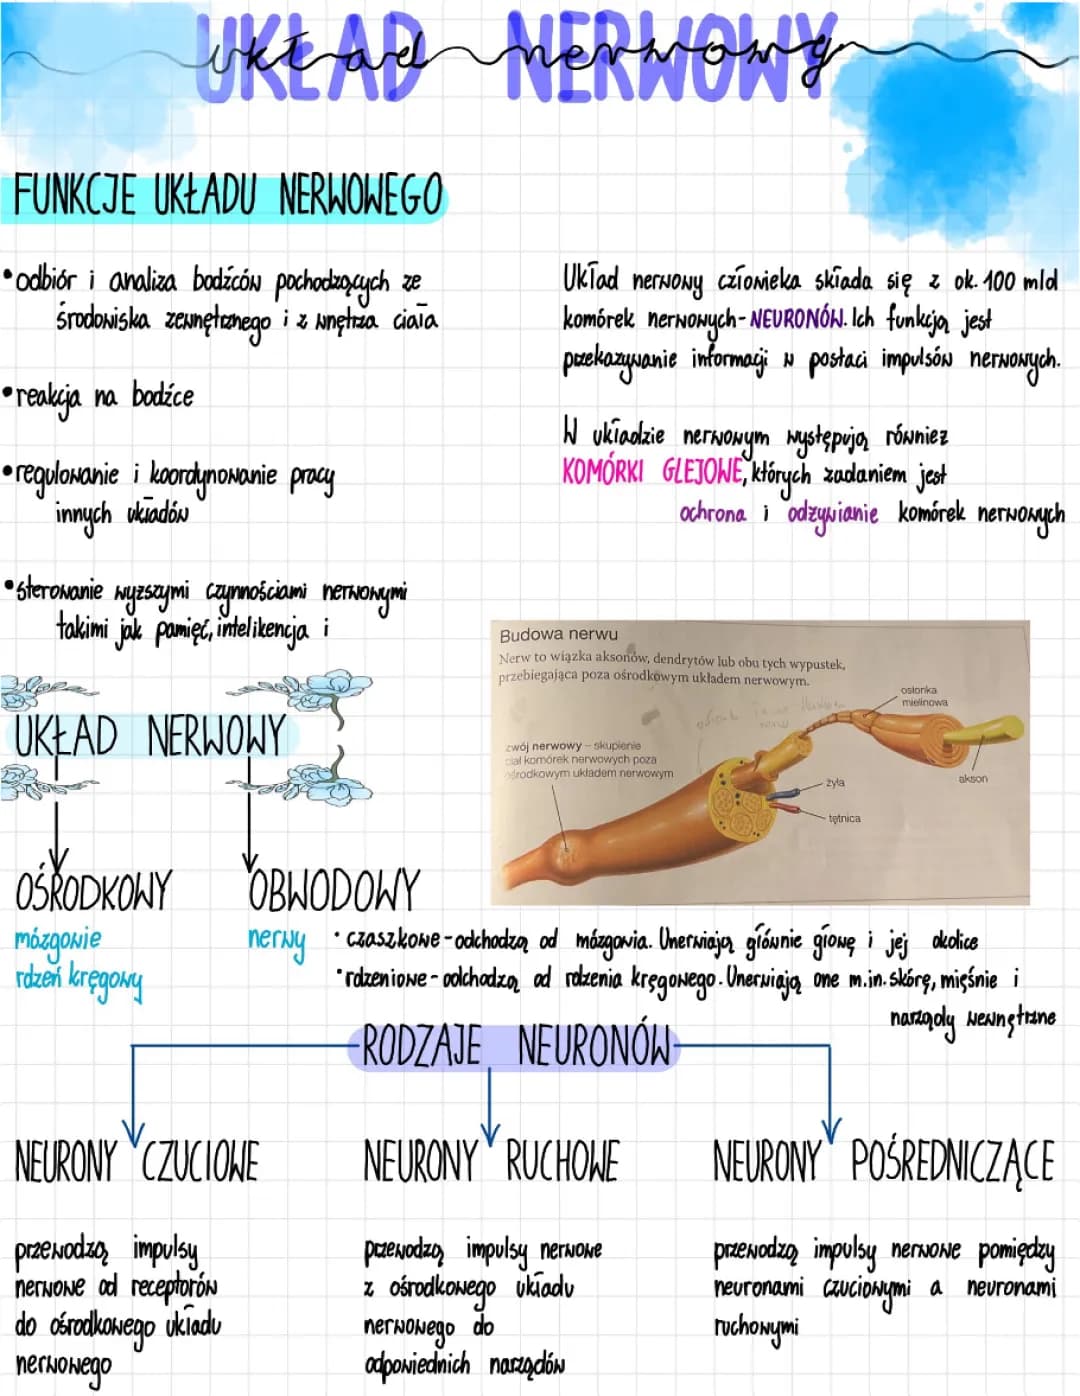 UKŁAD NERWOWY
układ nerwowy
FUNKCJE UKŁADU NERWOWEGO
•odbiór i analiza bodźców pochodzących ze
środowiska zewnętrznego i z wnętrza ciała
•reakcja na bodźce
•regulowanie i koordynowanie pracy
innych układów
•sterowanie wyższymi czynnościami nerwowymi
takimi jak pamięć, intelikencja i
Układ nerwowy człowieka składa się z ok. 100 mld
komórek nerwowych-NEURONÓW. Ich funkcją jest
przekazywanie informacji w postaci impulsów nerwowych.
W układzie nerwowym występują również
KOMÓRKI GLEJOWE, których zadaniem jest
ochrona i odżywianie komórek nerwowych
Budowa nerwu
Nerw to wiązka aksonów, dendrytów lub obu tych wypustek,
przebiegająca poza ośrodkowym układem nerwowym.
osłonka
mielinowa
zwój nerwowy – skupienie
ciał komórek nerwowych poza
ośrodkowym układem nerwowym
akson
żyła
tętnica
UKŁAD NERWOWY
OŚRODKOWY
mózgowie
rdzeń kręgowy
OBWODOWY
nerwy
• czaszkowe-odchodzą od mózgowia. Unerwiają głównie głowę i jej okolice
• rdzeniowe-odchodzą od rdzenia kręgowego. Unerwiają one m.in. skórę, mięśnie i
narządy wewnętrzne
RODZAJE NEURONÓW
NEURONY CZUCIOWE
przewodzą impulsy
nerwowe od receptorów
do ośrodkowego układu
nerwowego
NEURONY RUCHOWE
przewodzą impulsy nerwowe
z ośrodkowego układu
nerwowego do
odpowiednich narządów
NEURONY POŚREDNICZĄCE
przewodzą impulsy nerwowe pomiędzy
neuronami czuciowymi a neuronami
ruchowymi